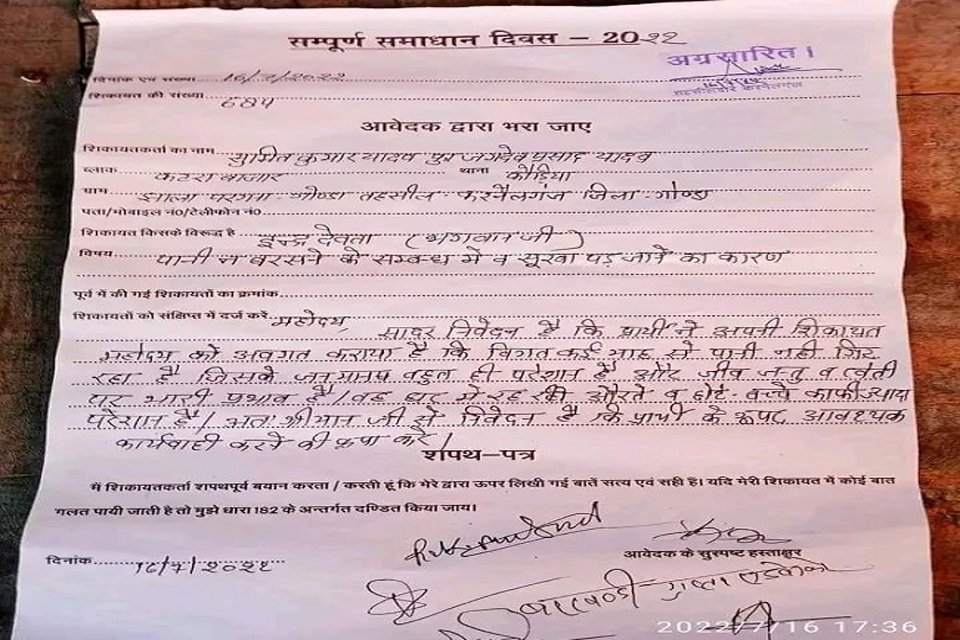 सम्पूर्ण समाधान दिवस – 2022
अग्रसारित।
दिनांक एवं संख्या 16/7/2022
शिकायत की संख्या
आवेदक द्वारा भरा जाए
शिकायतकर्ता का नाम सुमित कुमार यादव पुत्र जगदेव प्रसाद यादव
ब्लाक कटरा बाजार थाना कौड़िया
ग्राम झाला परगना-गोण्डा तहसील-करनैलगंज जिला-गोण्डा
पता/मोबाइल नं0/टेलीफोन नं0
शिकायत किसके विरूद्ध है इन्द्र देवता (भगवान जी)
विषय पानी न बरसने के सम्बन्ध में व सूखा पड़ जाने का कारण
पूर्व में की गई शिकायतों का क्रमांक
शिकायतों को संक्षिप्त में दर्ज करें महोदय,
सादर निवेदन है कि प्रार्थी ने अपनी शिकायत
महोदय को अवगत कराया है कि विगत कई माह से पानी नहीं गिर
रहा है जिसके बहुत ही परेशान है और जीव जन्तु व खेती
पर भारी प्रभाव है। घर में रह रही औरते व छोटे-बच्चे काफी ज्यादा
परेशान है। अतः श्रीमान जी से निवेदन है कि प्रार्थी के आवश्यक
कार्यवाही करने की कृपा करें।
शपथ–पत्र
मैं शिकायतकर्ता शपथपूर्व बयान करता / करती हूं कि मेरे द्वारा ऊपर लिखी गई बातें सत्य एवं सही हैं। यदि मेरी शिकायत में कोई बात
गलत पायी जाती है तो मुझे धारा 182 के अन्तर्गत दण्डित किया जाय।
आवेदक के सुस्पष्ट हस्ताक्षर
दिनांक
2022/7/16 17:36